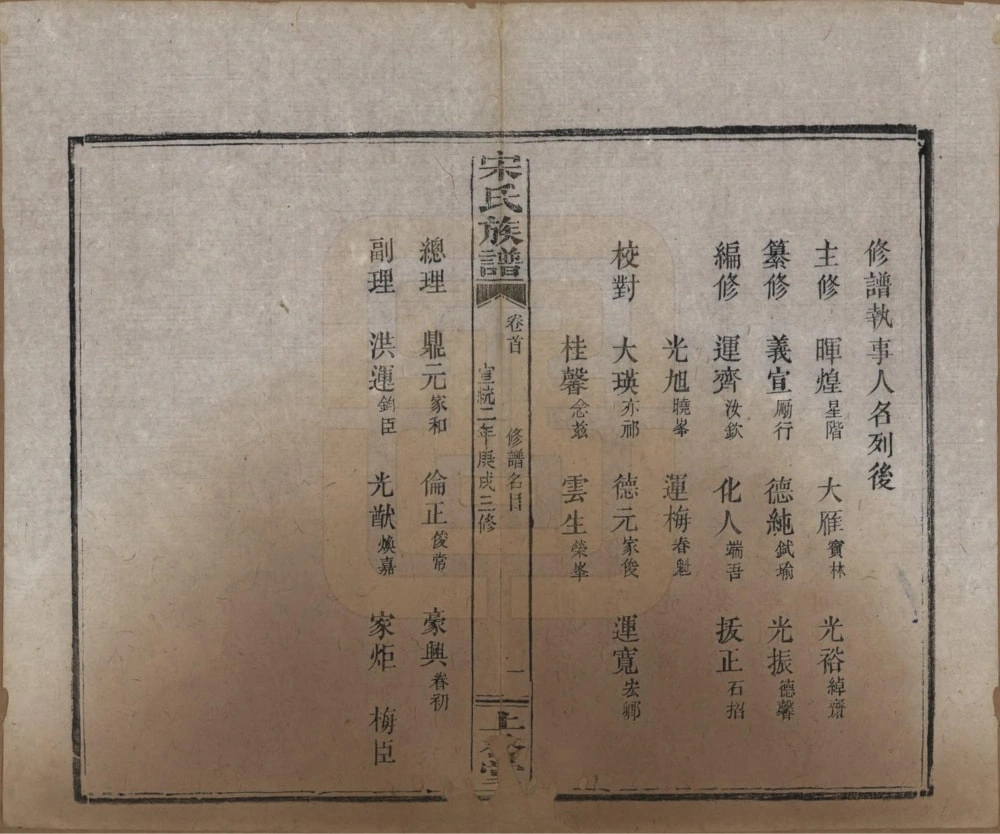 修譜執事人名列後
主修 暉煌 星階 大雁 寶林 光裕 綽齋
纂修 義宣 勵行 德純 鉽瑜 光振 德馨
編修 運齊 汝欽 化人 端吾 拔正 石招
光旭 曉峯 運梅 春魁
校對 大瑛 亦祁 德元 家俊 運寬 宏鄉
桂馨 念兹 雲生 榮峯
宋氏族譜 卷首 修譜名目 一
宣統二年庚戌三修
總理 鼎元 家和 倫正 俊常 豪興 春初
副理 洪運 鈞臣 光猷 煥嘉 家炬 梅臣